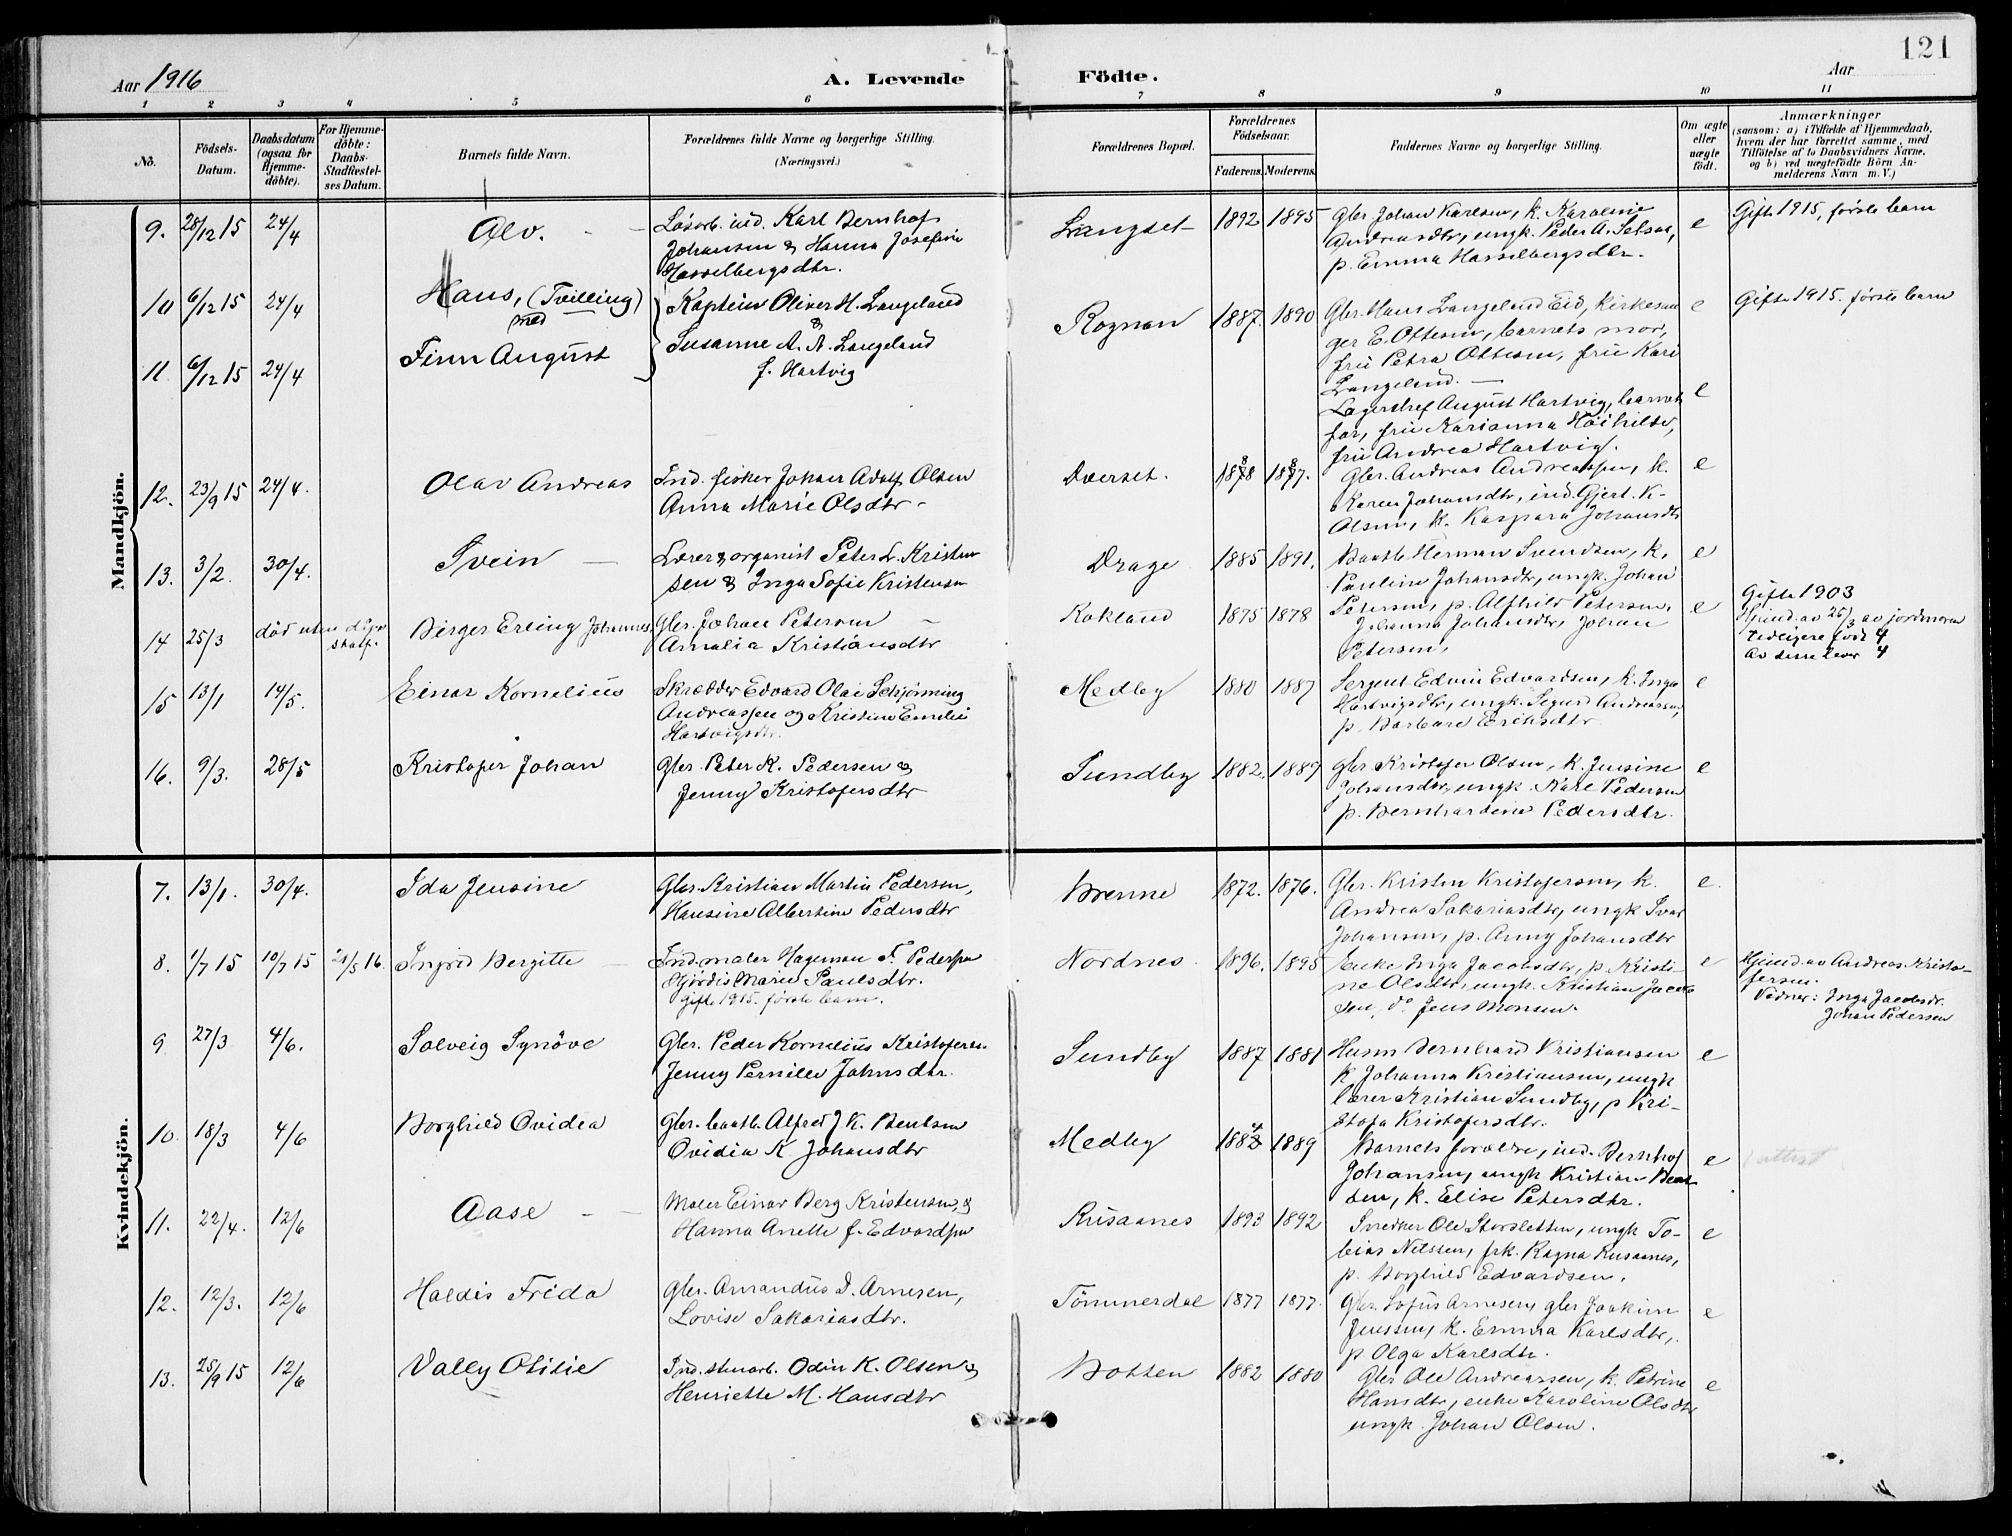 121
Aar 1916
A. Levende Födte.
Aar
1 2 3 4 5 6 7 8 9 10 11
No.
Födsels-Datum.
Daabsdatum (ogsaa for Hjemme-döbte).
For Hjemme-döbte: Daabs-Stadfæstel-ses Datum.
Barnets fulde Navn.
Forældrenes fulde Navne og borgerlige Stilling. (Næringsvei.)
Forældrenes Bopæl.
Forældrenes Födselsaar.
Faderens. Moderens.
Faddernes Navne og borgerlige Stilling.
Om ægte eller uægte födt.
Anmærkninger
(saasom: a) i Tilfælde af Hjemmedaab,
hvem der har forrettet samme, med
Tilföielse af to Daabsvidners Navne,
og b) ved uægtefödte Börn An-
melderens Navn m. V.)
Mandkjön.
9. 28/12 15 24/4 Alv. Løsarb. ind. Karl Bernhof
Johansen & Hanna Josefine
Hasselbergsdtr.
Langset 1892 1895 Gbr. Johan Karlsen, k. Karoline
Andreasdtr, ungk. Peder A. Setsaa,
p. Emma Hasselbergsdtr. e Gifte 1915, første barn
10 6/12 15 24/4 Hans, (Tvilling)
med
Kaptein Oliver H. Langeland
&
Susanne A. A. Langeland
f. Hartvig
Rognan 1887. 1890 Gbr. Hans Langeland Eid, kirkesan
ger E. Ottesen, barnets mor,
fru Petra Ottesen, fru Kari
Langeland. e Gifte 1915. første barn
11. 6/12 15 24/4 Finn August
Lagerchef August Hartvig, barnets
far, fru Marianna Høihilder,
fru Andrea Hartvig. e
12. 23/9 15 24/4. Olav Andreas Ind. fisker Johan Adolf Olsen
Anna Marie Olsdtr
Dverset. 1888 1887. Gbr. Andreas Andreassen, k.
Karen Johansdtr, ind. Gjert K.
Olsen, k. Kaspara Johansdtr e
13. 3/2. 30/4. Svein Lærer & organist Peter L. Kristen
sen & Inga Sofie Kristensen
Drage 1885 1891. Baatb. Herman Svendsen, k.
Pauline Johansdtr, ungk. Johan
Petersen, p. Alfhild Petersen. e
14 25/3 død uten daps
skatf.
Birger Erling Johannes. Gbr. Johan Petersen
Amalia Kristiansdtr
Rokland 1875 1878 Johanna Johansdtr, Johan
Petersen, e Gifte 1903
Hjemd. av 25/3 av jordmoren
tidligere født 4
Av disse lever 4
15 13/1 14/5. Einar Kornelius Skrædder Edvard Olai Schjønning
Andreassen og Kristine Emelie
Hartvigsdtr.
Medby 1880 1887 Sergent Edvin Edvardsen, k. Inga
Hartvigsdtr, ungk. Sigurd Andreassen,
p. Barbare Eriksdtr. e
16. 9/3. 28/5 Kristofer Johan Gbr. Peter K. Pedersen &
Jenny Kristofersdtr
Sundby 1882. 1889 Gbr Kristofer Olsen, k. Jensine
Johansdtr, ungk. Kåre Pedersen
p. Bernhardine Pedersdtr. e
Kvindekjön.
7. 13/1. 30/4. Ida Jensine Gbr. Kristian Martin Pedersen,
Hansine Albertine Pedersdtr
Brenne 1872. 1876. Gbr. Kristen Kristofersen, k.
Andrea Sakariasdtr, ungk Ivar
Johansen, p. Anny Johansdtr e.
8. 1/7 15 10/7 15 21/5 16. Ingrid Bergitte Ind. maler Hageman F. Pedersen
Hjördis Marie Paulsdtr.
gifte 1915. første barn.
Nordnes 1896. 1895 Enke Inga Jacobsdtr, p. Kristi-
ne Olsdtr, ungk. Kristian Jacob
sen, do Jens Monsen. e Hjemd. av Andreas Kristo-
fersen.
Vidner: Inga Jacobsdr.
Johan Pedersen
9 27/3 4/6. Solveig Synöve Gbr. Peder Kornelius Kristofersen
Jenny Pernille Johnsdtr.
Sundby 1887 1881 Husm Bernhard Kristiansen
k Johanna Kristiansen, ungk
lærer Kristian Sundby, p Kri-
stofa Kristofersdtr. e
10. 18/3 4/6 Borghild Ovidea Gbr. baatb. Alfred J. K. Bentsen
Ovidia K. Johansdtr
Medby 1884 1889 Barnets forældre, ind. Bernhof
Johansen, ungk Kristian Bent
sen, k. Elise Petersdtr. e attest
11. 22/4. 12/6 Aase Maler Einar Berg Kristensen, &
Hanna Anette f. Edvardsen
Rusaanes 1893 1892 Snedker Ole Storsletten, ungk To-
bias Nilssen, frk. Ragna Rusaanes,
p. Borghild Edvardsen. e
12. 12/3. 12/6 Haldis Frida Gbr. Amandus D. Arnesen,
Lovise Sakariasdtr.
Tömmerdal 1877 1877. Gbr. Sofus Arnesen, gbr Joakim
Jenssen, k. Emma Karlsdtr,
p. Olga Karlsdtr. e
13. 25/9 15 12/6 Vally Otilie Ind. stenarb. Odin K. Olsen &
Henriette M. Hansdtr
Botten 1882 1880 Gbr Ole Andreassen, k. Petrine
Hansdtr, enke Karoline Olsdtr
ungk. Johan Olsen. e